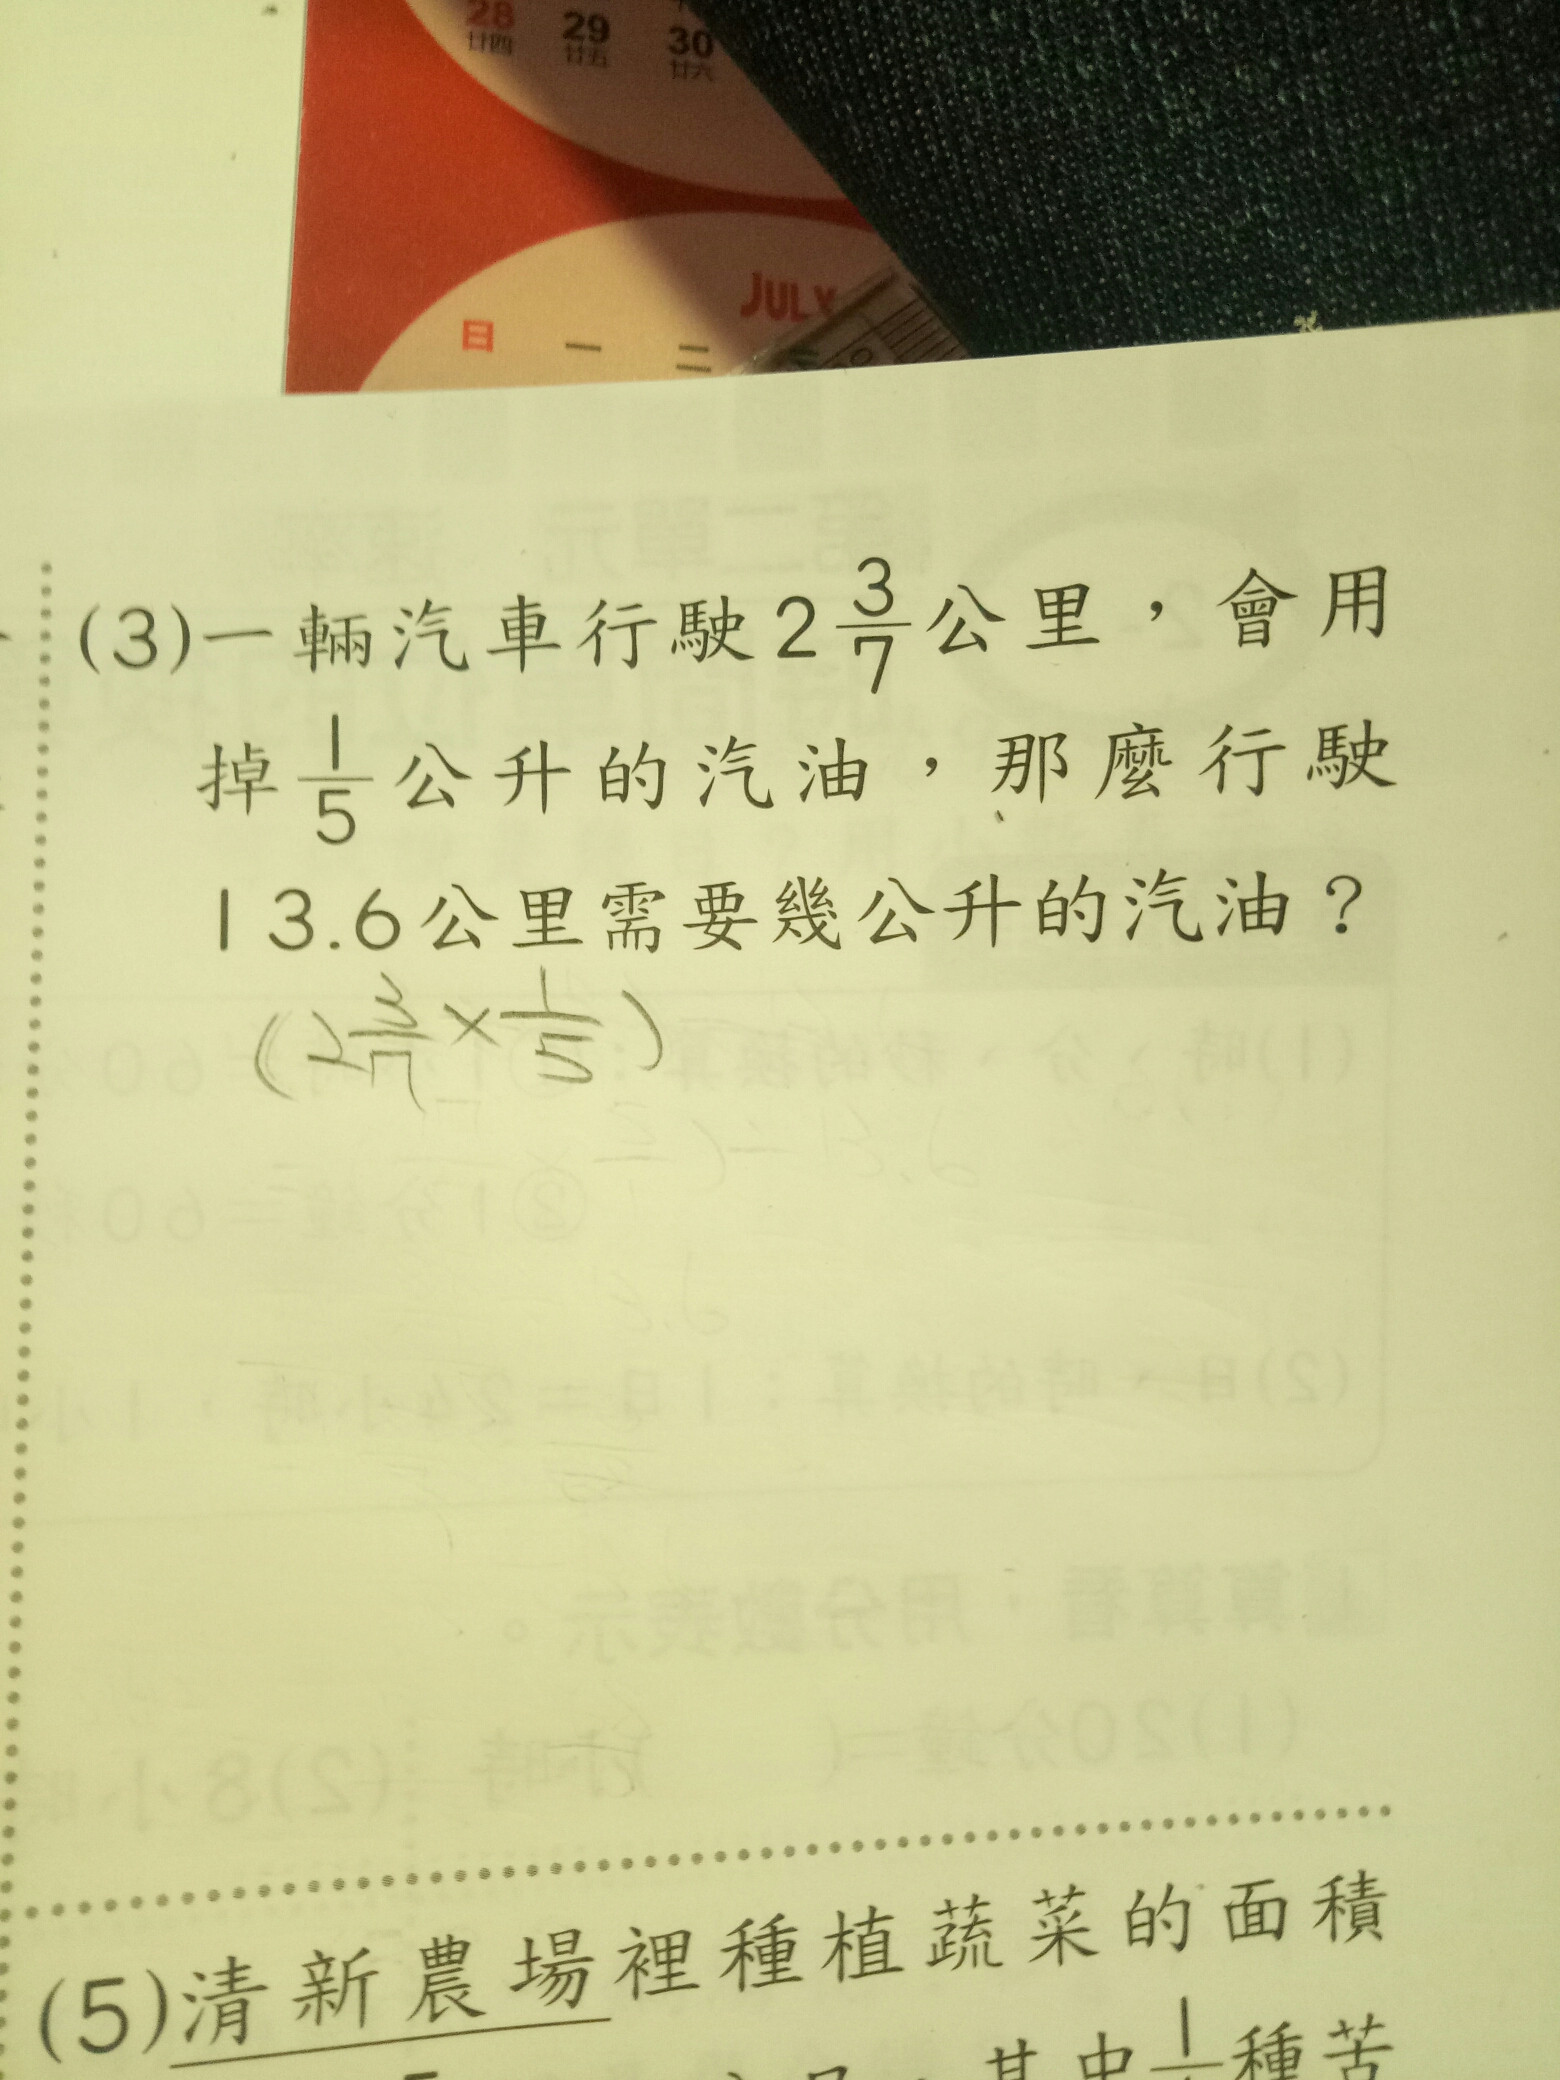 28 29 30
廿四 廿五 廿六
JULY
日 一 二 三
(3)一輛汽車行駛2 3/7 公里，會用
掉 1/5 公升的汽油，那麼行駛
13.6公里需要幾公升的汽油？
(2 3/7 × 1/5)
(5)清新農場裡種植蔬菜的面積
其中 種苦